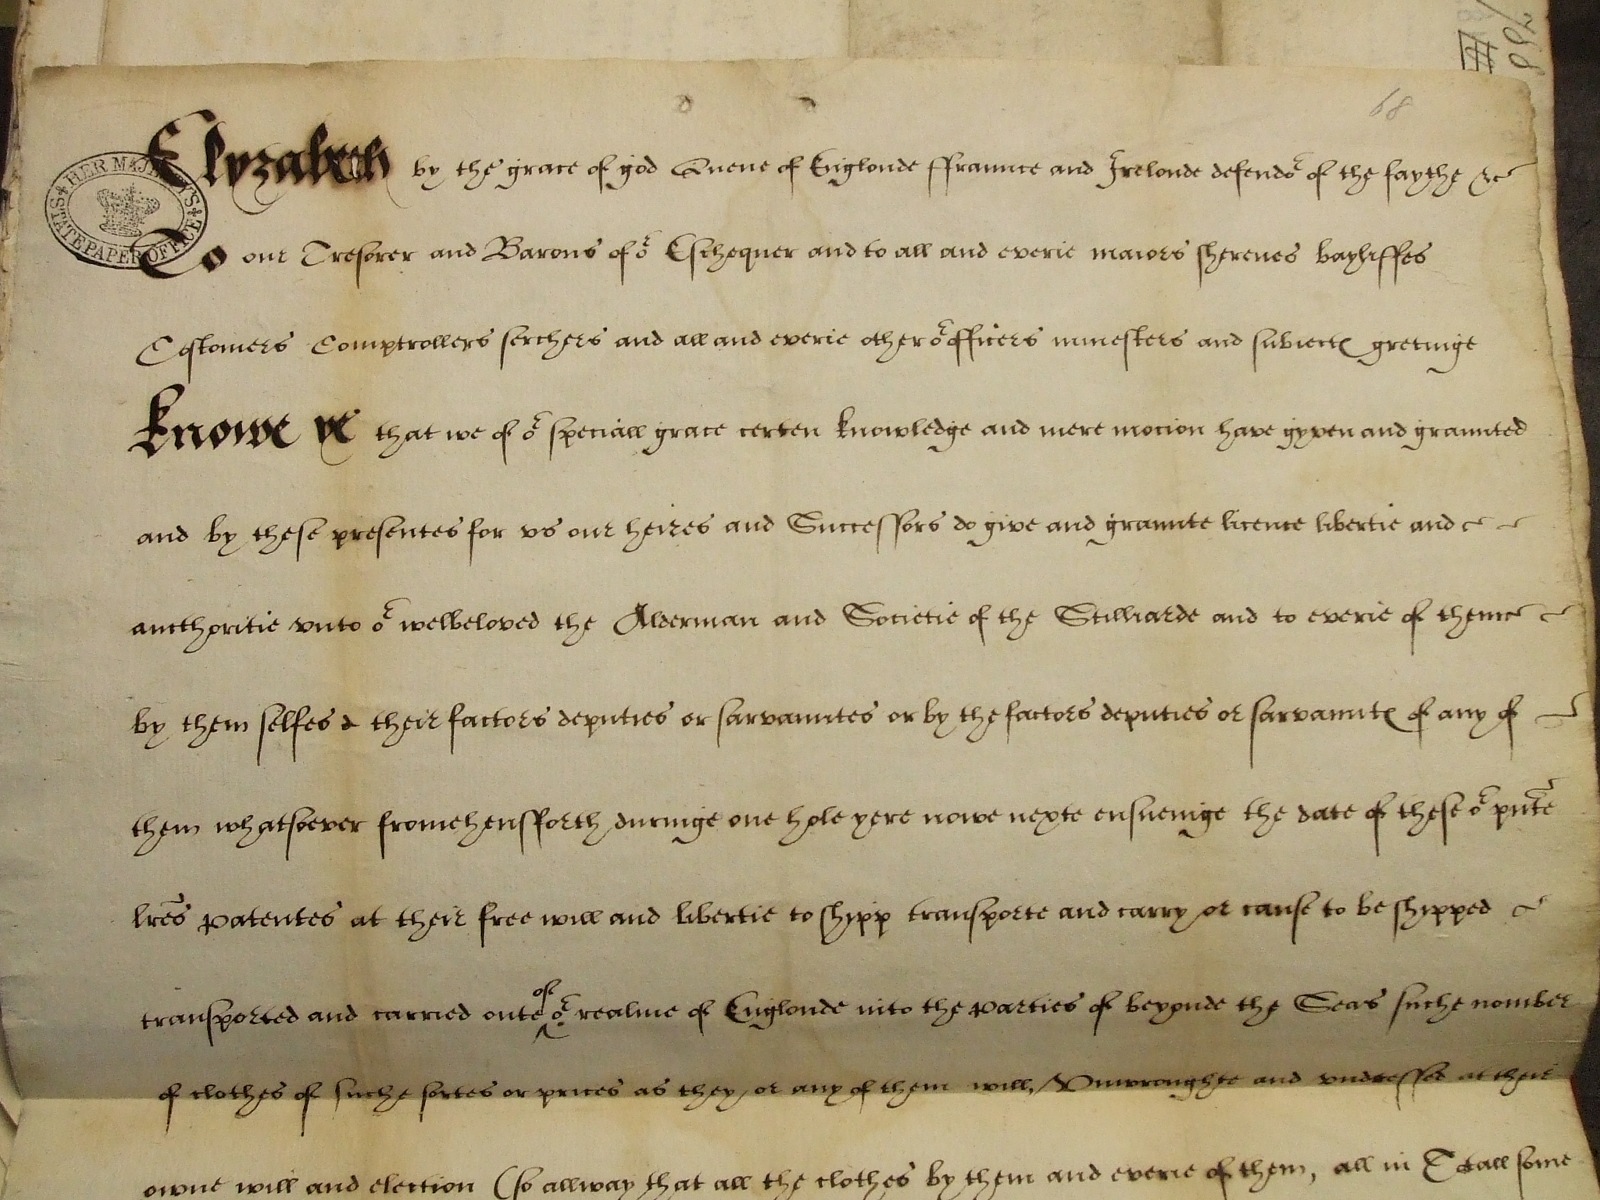 68
HER MAJESTY'S STATE PAPER OFFICE
Elyzabeth by the grace of god Quene of Englonde ffraunce and Irelonde defendor of the faythe &c
To our Tresorer and Barons of or Eschequer and to all and everie maiors sherenes bayliffes
Costomers Comptrollers serchers and all and everie other or officers ministers and subiectes gretinge
Knowe ye that we of or speciall grace certen knowledge and mere mocion have gyven and graunted
and by these presentes for vs our heires and Successors do give and graunte licence libertie and
aucthoritie vnto or welbeloved the Alderman and Societie of the Stilliarde and to everie of theme
by them selfes & their factors deputies or sarvauntes or by the factors deputies or sarvauntes of any of
them whatsoever fromehensfforth duringe one hole yere nowe nexte ensueinge the date of these or pnte
lres patentes at their free will and libertie to shipp transporte and carry or cause to be shipped
transported and carried oute of or realme of Englonde into the parties of beyonde the Seas suche nomber
of clothes of suche sortes or prices as they or any of them will / Vnwroughte and vndressed at their
owne will and election (so allway that all the clothes by them and everie of them, all in Totall some